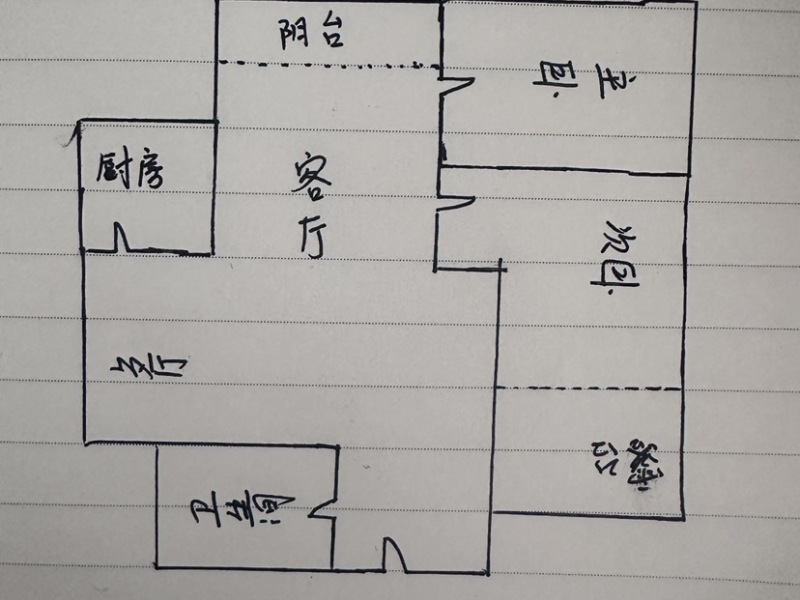 阳台
主卧
厨房
客厅
次卧
客厅
卫生间